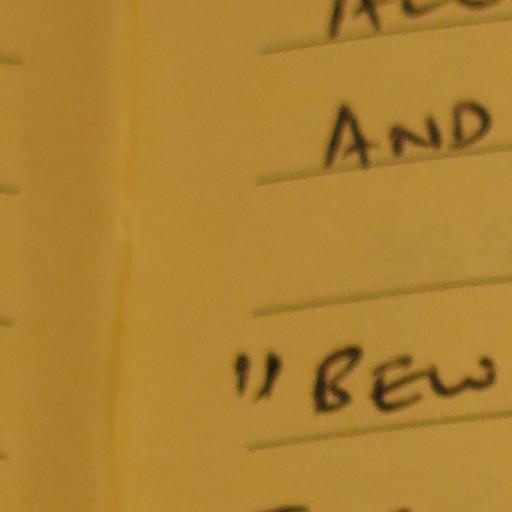 AND
"BEW